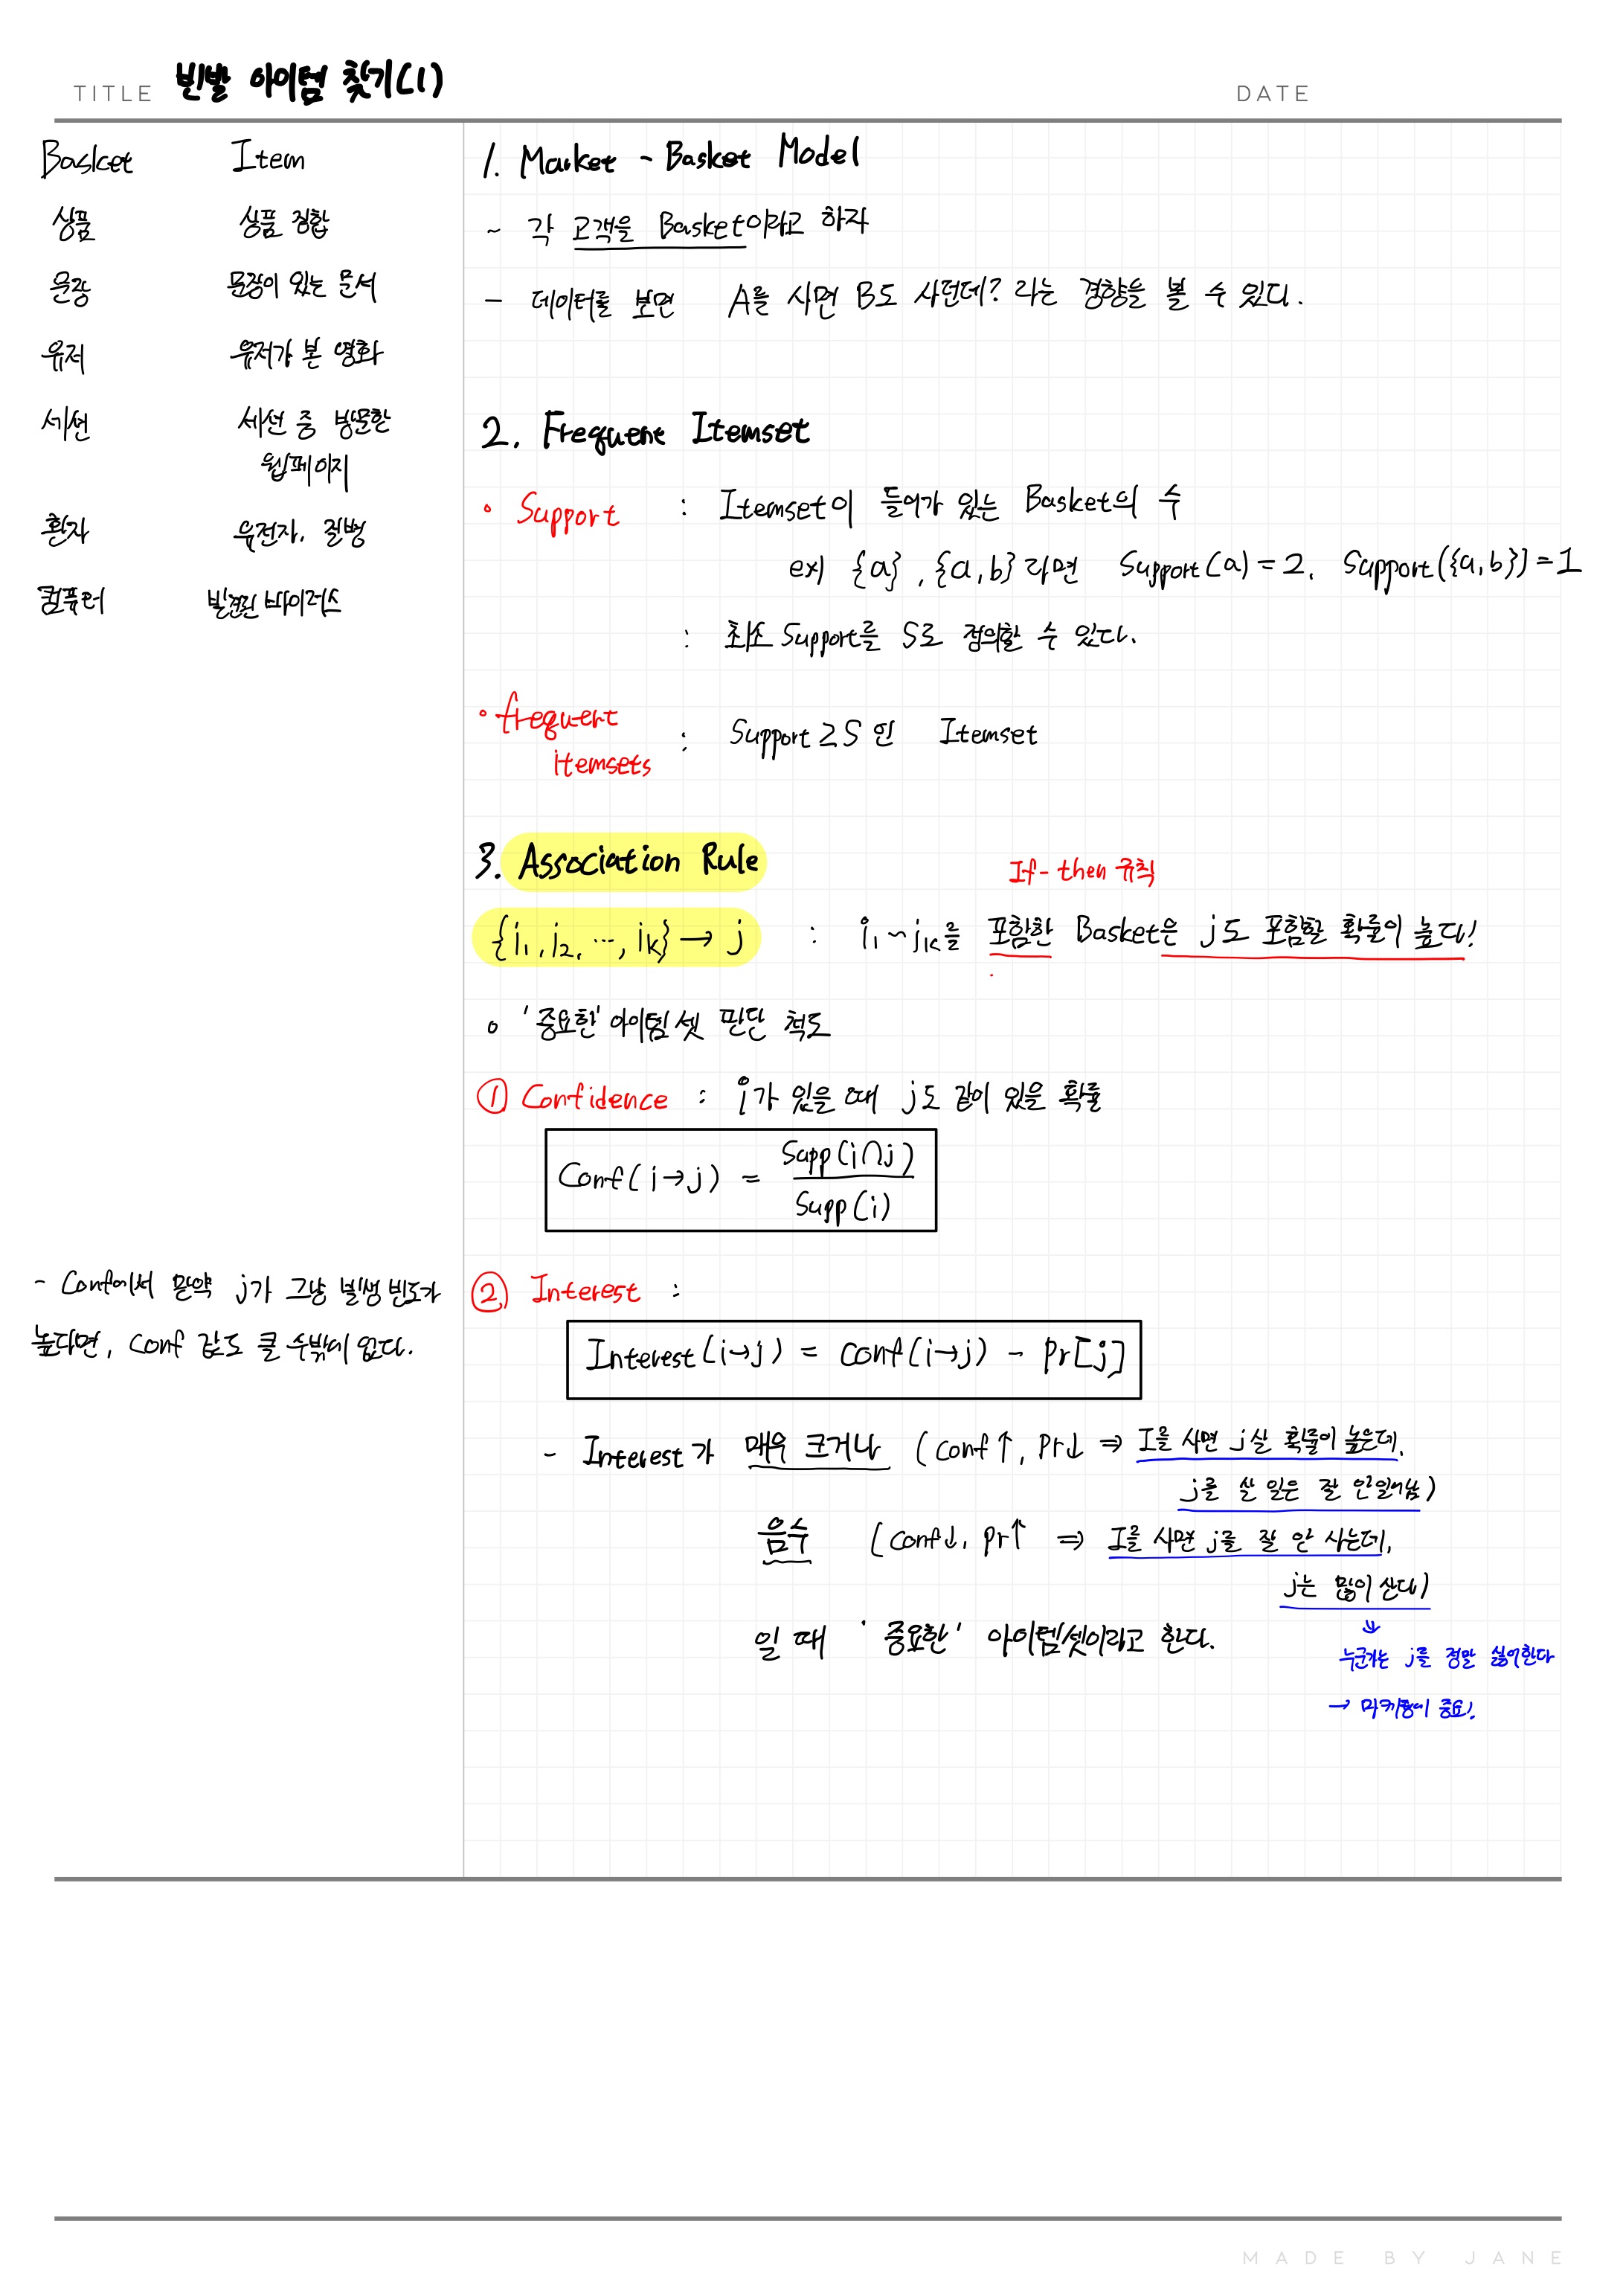 TITLE 빈발 아이템 찾기(1)
DATE
Basket Item
상품 상품 집합
문장 문장이 있는 문서
유저 유저가 본 영화
세션 세션 중 방문한
웹페이지
환자 유전자, 질병
컴퓨터 발견된 바이러스
1. Market - Basket Model
- 각 고객을 Basket이라고 하자
- 데이터를 보면 A를 사면 B도 사던데? 라는 경향을 볼 수 있다.
2. Frequent Itemset
• Support : Itemset이 들어가 있는 Basket의 수
ex) {a}, {a, b} 라면 Support(a) = 2, Support({a, b}) = 1
: 최소 Support를 S로 정의할 수 있다.
• frequent
itemsets : Support ≥ S 인 Itemset
3. Association Rule
If-then 규칙
{i₁, i₂, ..., iₖ} → j : i₁ ~ jₖ를 포함한 Basket은 j도 포함할 확률이 높다!
o '중요한' 아이템셋 판단 척도
① Confidence : i가 있을 때 j도 같이 있을 확률
Conf(i→j) = Supp(i∩j) / Supp(i)
- Conf에서 만약 j가 그냥 발생 빈도가
높다면, Conf 값도 클 수밖에 없다.
② Interest :
Interest(i→j) = conf(i→j) - Pr[j]
- Interest가 매우 크거나 (conf↑, Pr↓ ⇒ I를 사면 j살 확률이 높은데,
j를 살 일은 잘 안일어남)
음수 (conf↓, pr↑ ⇒ I를 사면 j를 잘 안 사는데,
j는 많이 산다)
일 때 '중요한' 아이템셋이라고 한다.
↓
누군가는 j를 정말 싫어한다
→ 마케팅에 중요!
MADE BY JANE